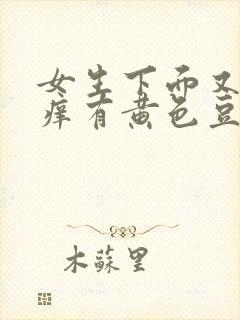 女生下面又
痒有黄色豆
木蘇里